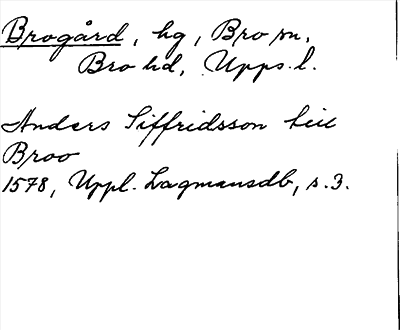 Brogård, hg, Bro sn,
Bro hd, Upps. l.
Anders Siffridsson till
Broo
1578, Uppl. Lagmansdb, s. 3.